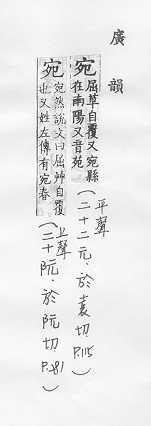 廣韻
宛
屈草自覆又宛縣
在南陽又音苑
平聲
(二十二元．於袁切．P.115)
宛
宛然說文曰屈艸自覆
也又姓左傳有宛春
上聲
(二十阮．於阮切．P.281)